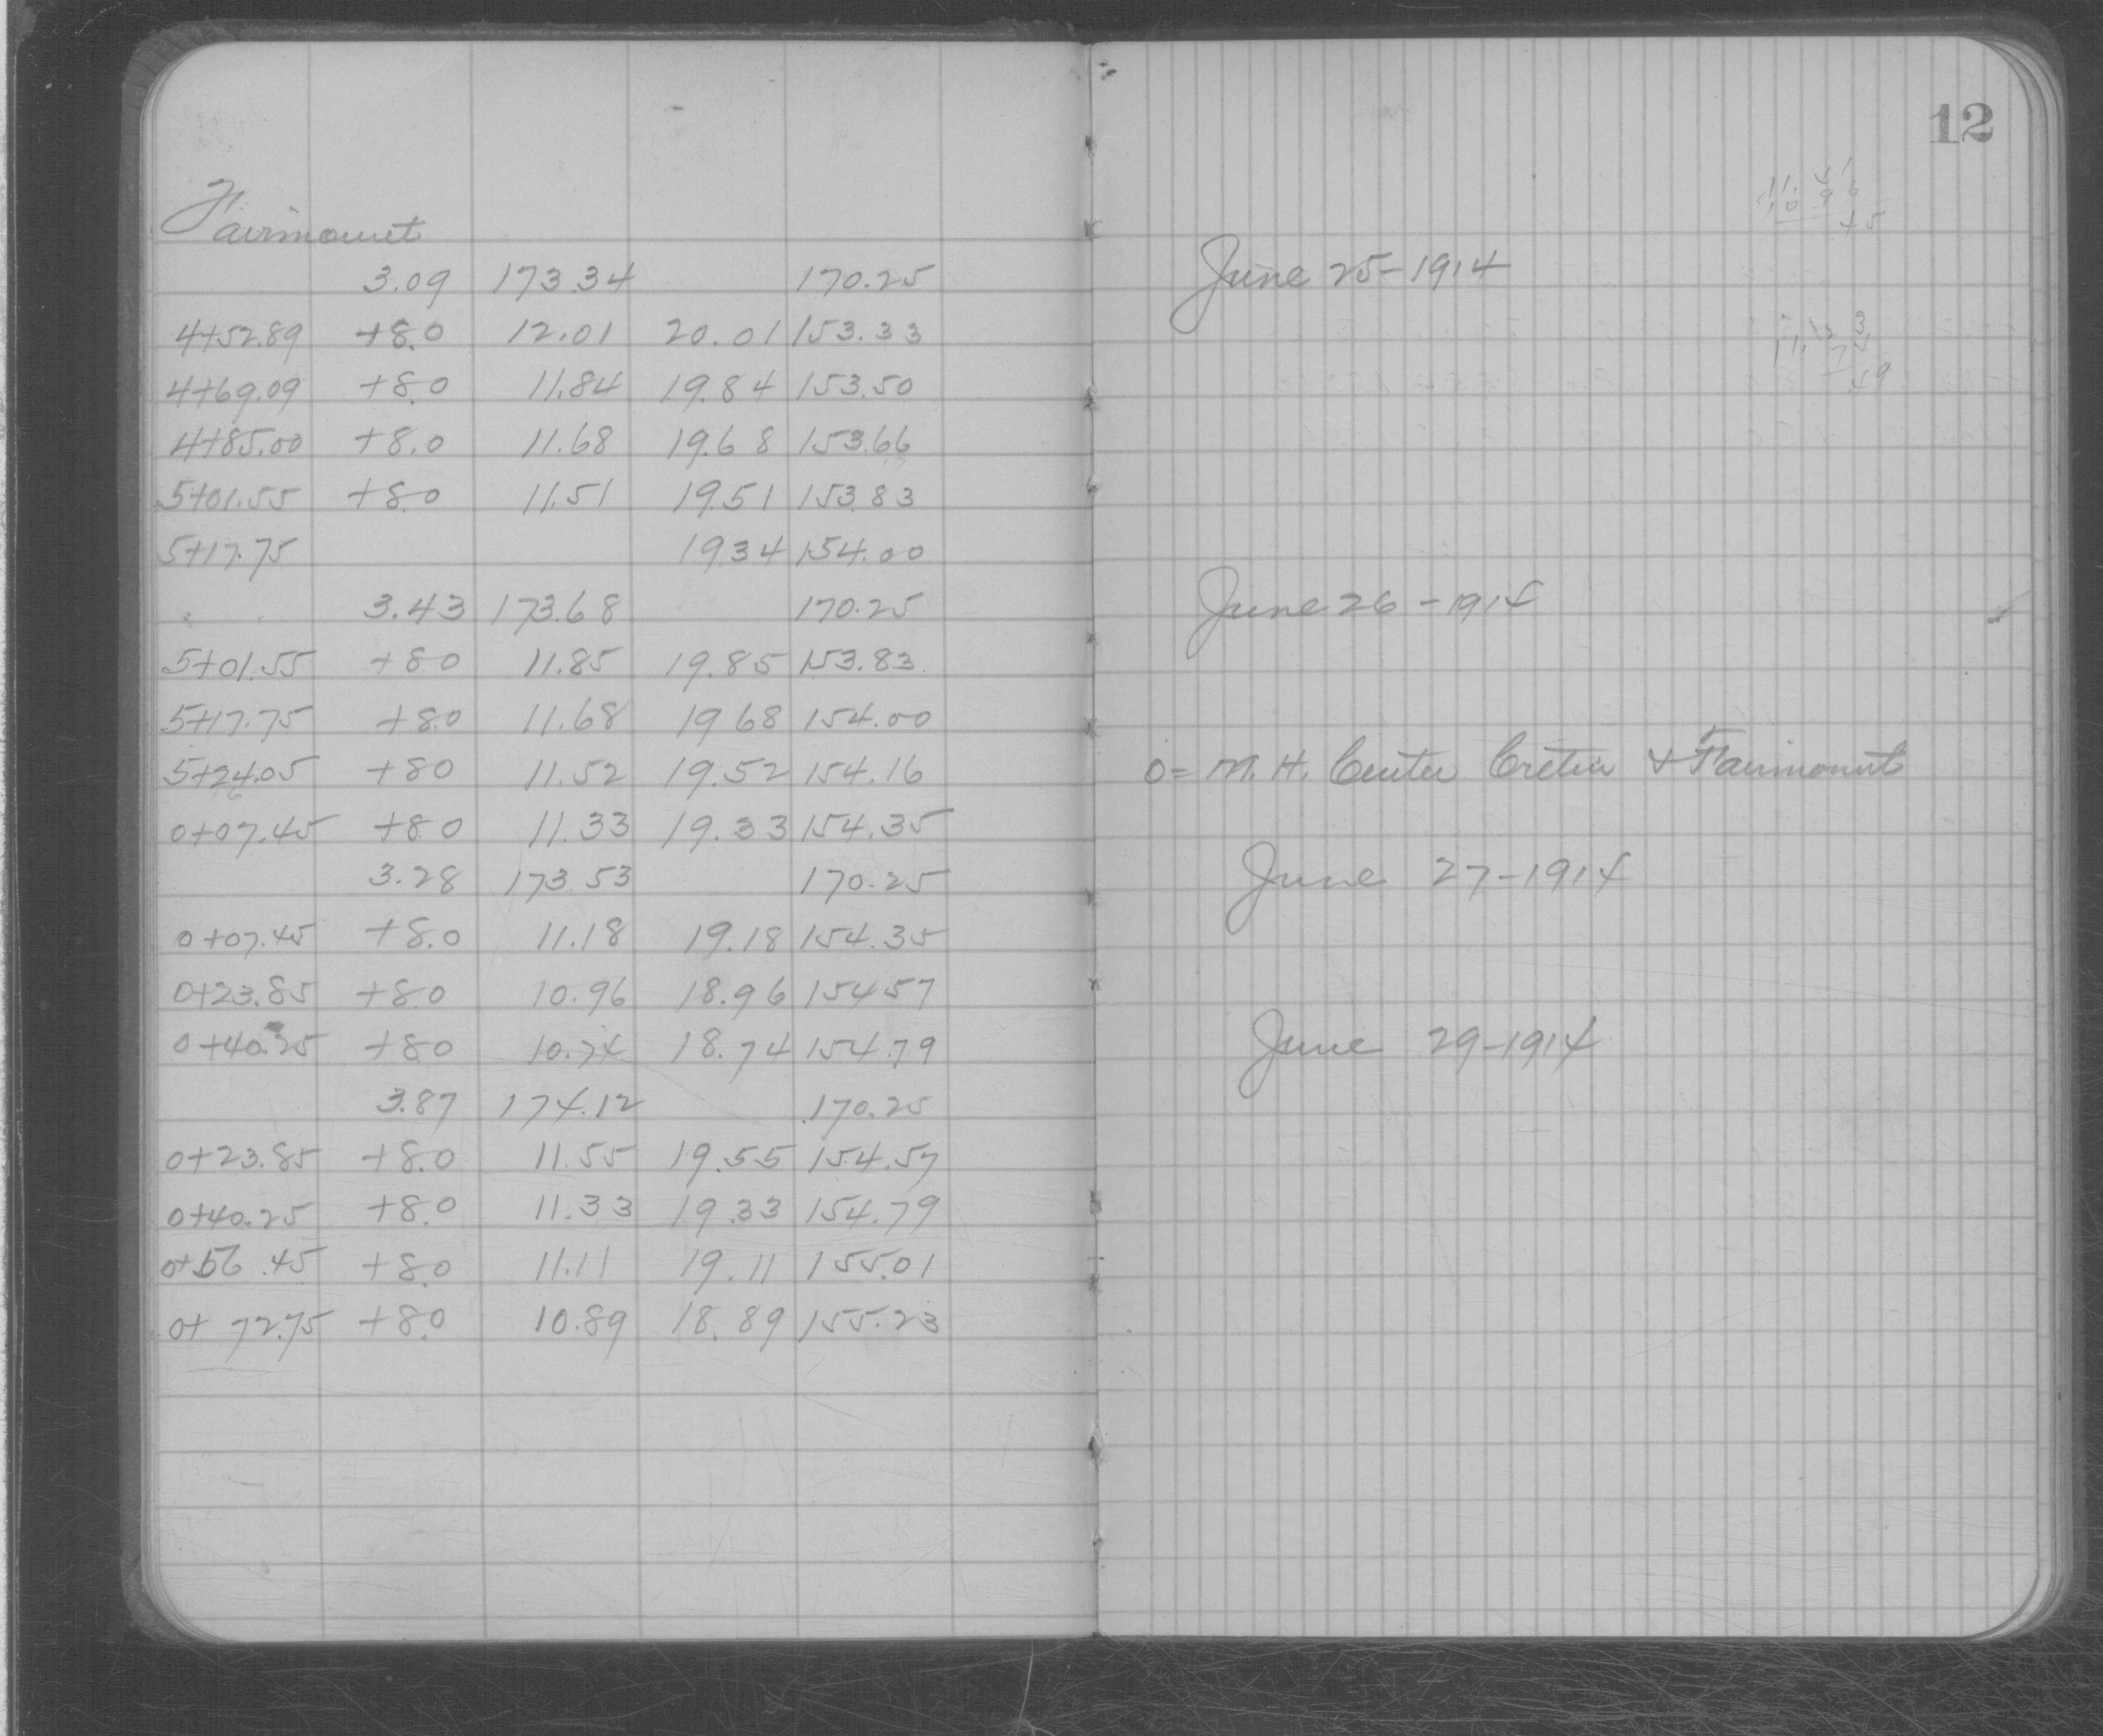 12
Fairmount
3.09 173.34 170.25 June 25-1914
4+52.89 +8.0 12.01 20.01 153.33
4+69.09 +8.0 11.84 19.84 153.50
4+85.00 +8.0 11.68 19.68 153.66
5+01.55 +8.0 11.51 19.51 153.83
5+17.75 19.34 154.00
3.43 173.68 170.25 June 26-1914
5+01.55 +80 11.85 19.85 153.83
5+17.75 +8.0 11.68 19 68 154.00
5+24.05 +80 11.52 19.52 154.16 0= M.H. Center Cretin & Fairmount
0+07.45 +80 11.33 19.33 154.35
3.28 173.53 170.25 June 27-1914
0+07.45 +8.0 11.18 19.18 154.35
0+23.85 +8.0 10.96 18.96 154 57
0+40.25 +80 10.74 18.74 154.79 June 29-1914
3.87 174.12 170.25
0+23.85 +8.0 11.55 19.55 154.57
0+40.25 +8.0 11.33 19.33 154.79
0+56.45 +8.0 11.11 19.11 155.01
0+72.75 +8.0 10.89 18.89 155.23